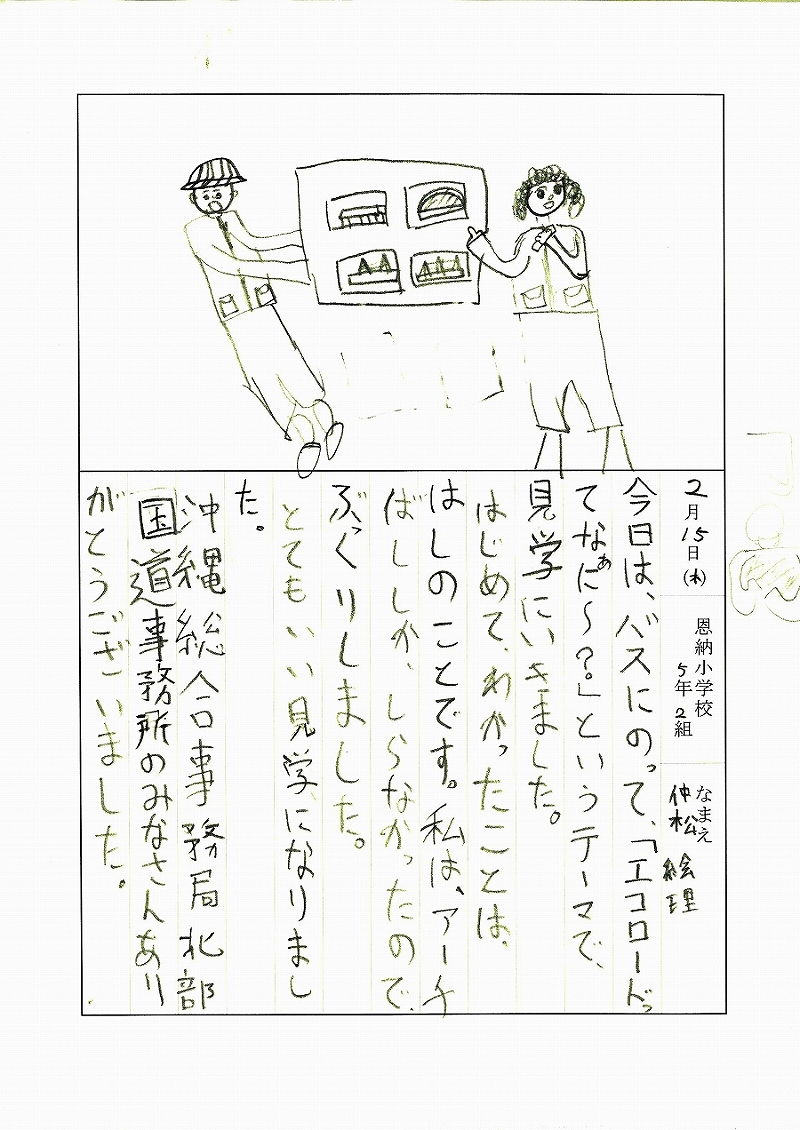 2月15日(水)
恩納小学校
5年2組
なまえ
仲松 絵理
今日は、バスにのって、「エコロードっ
てなぁに～?」というテーマで、
見学にいきました。
はじめて、わかったことは、
はしのことです。私は、アーチ
ばししか、しらなかったので、
ぶっくりしました。
とてもいい見学になりまし
た。
沖縄総合事務局北部
国道事務所のみなさんあり
がとうございました。